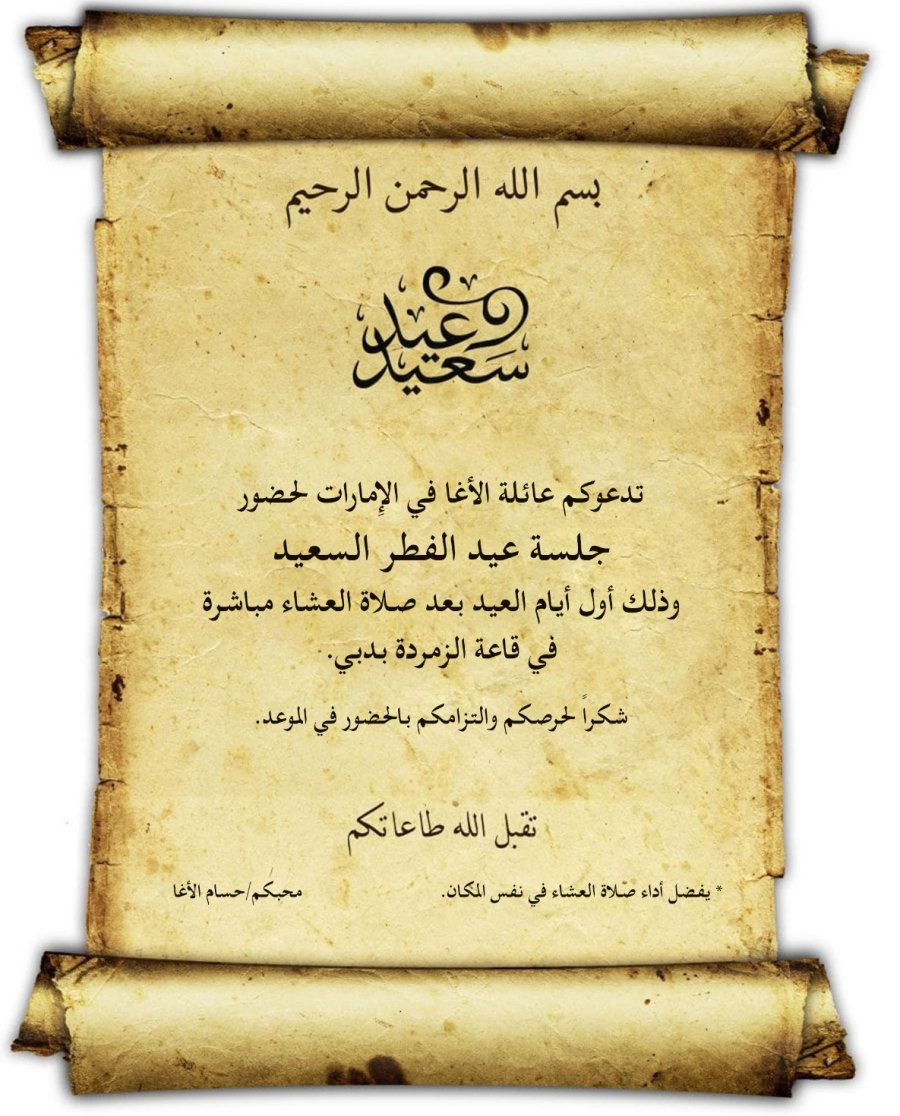 بسم الله الرحمن الرحيم
عيد
سعيد
تدعوكم عائلة الأغا في الإِمارات لحضور
جلسة عيد الفطر السعيد
وذلك أول أيام العيد بعد صلاة العشاء مباشرة
في قاعة الزمردة بدبي.
شكراً لحرصكم والتزامكم بالحضور في الموعد.
تقبل الله طاعاتكم
* يفضل أداء صلاة العشاء في نفس المكان.
محبكم/حسام الأغا